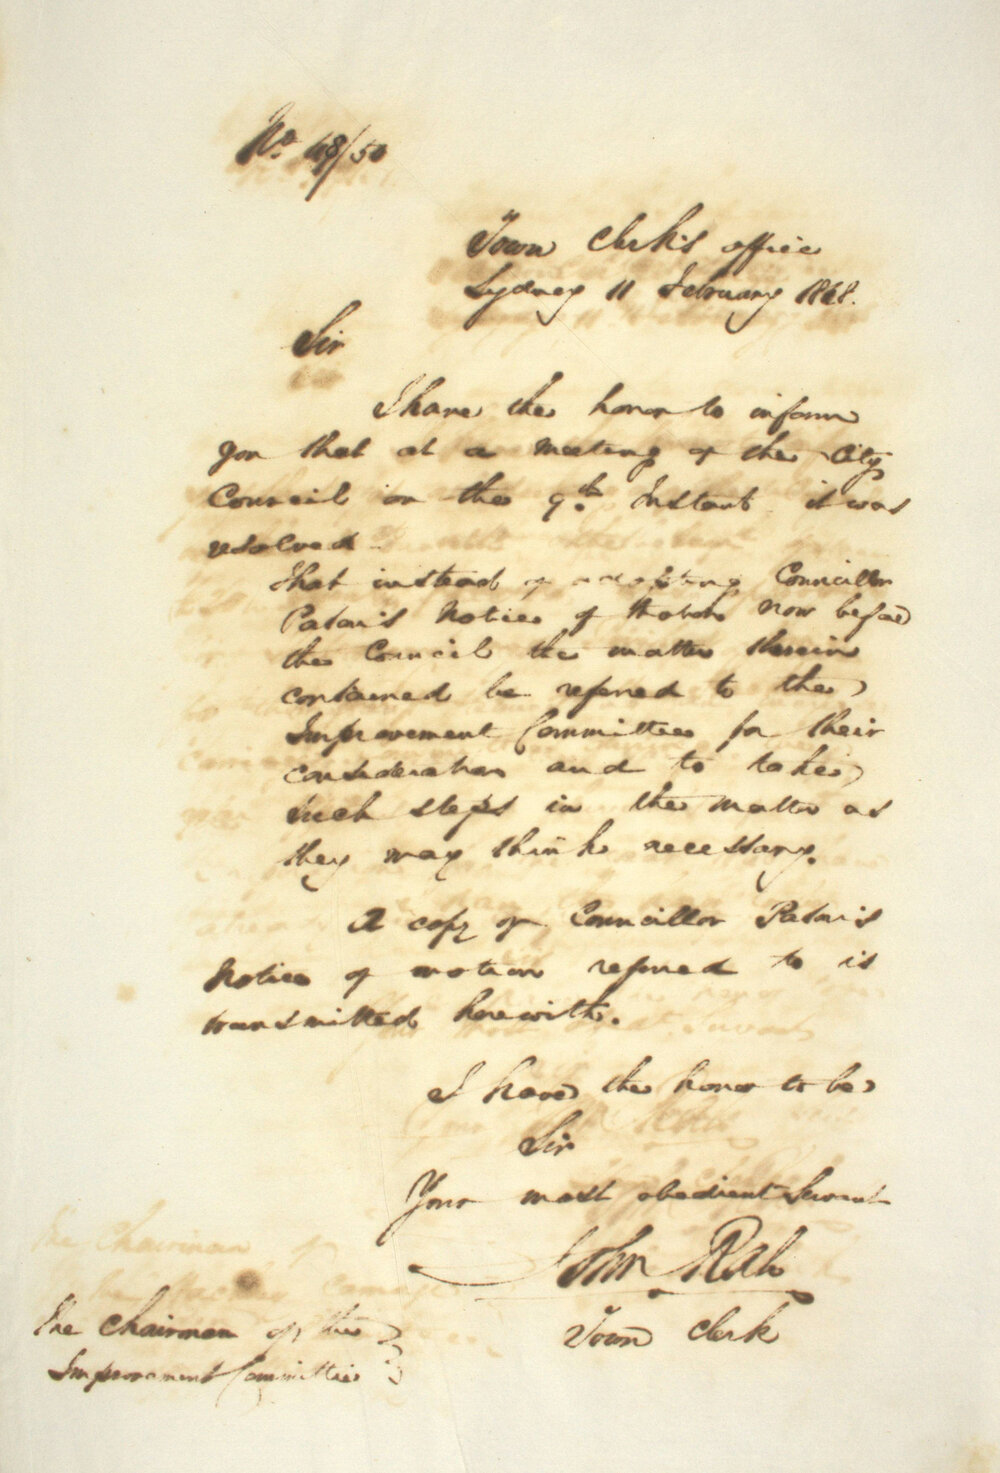 No. 48/50
Town Clerk's office
Sydney 11 February 1848.
Sir
I have the honor to inform
you that at a Meeting of the City
Council on the 9th Instant it was
resolved
That instead of adopting Councillor
Notice of Motion now before
the Council the matter therein
contained be referred to the
Improvement Committee for their
consideration and to take
such steps in the matter as
they may think necessary.
A copy of Councillor
Notice of motion referred to is
transmitted herewith.
I have the honor to be
Sir
Your most obedient Servant
John Rae
Town Clerk
The Chairman of the
Improvement Committee